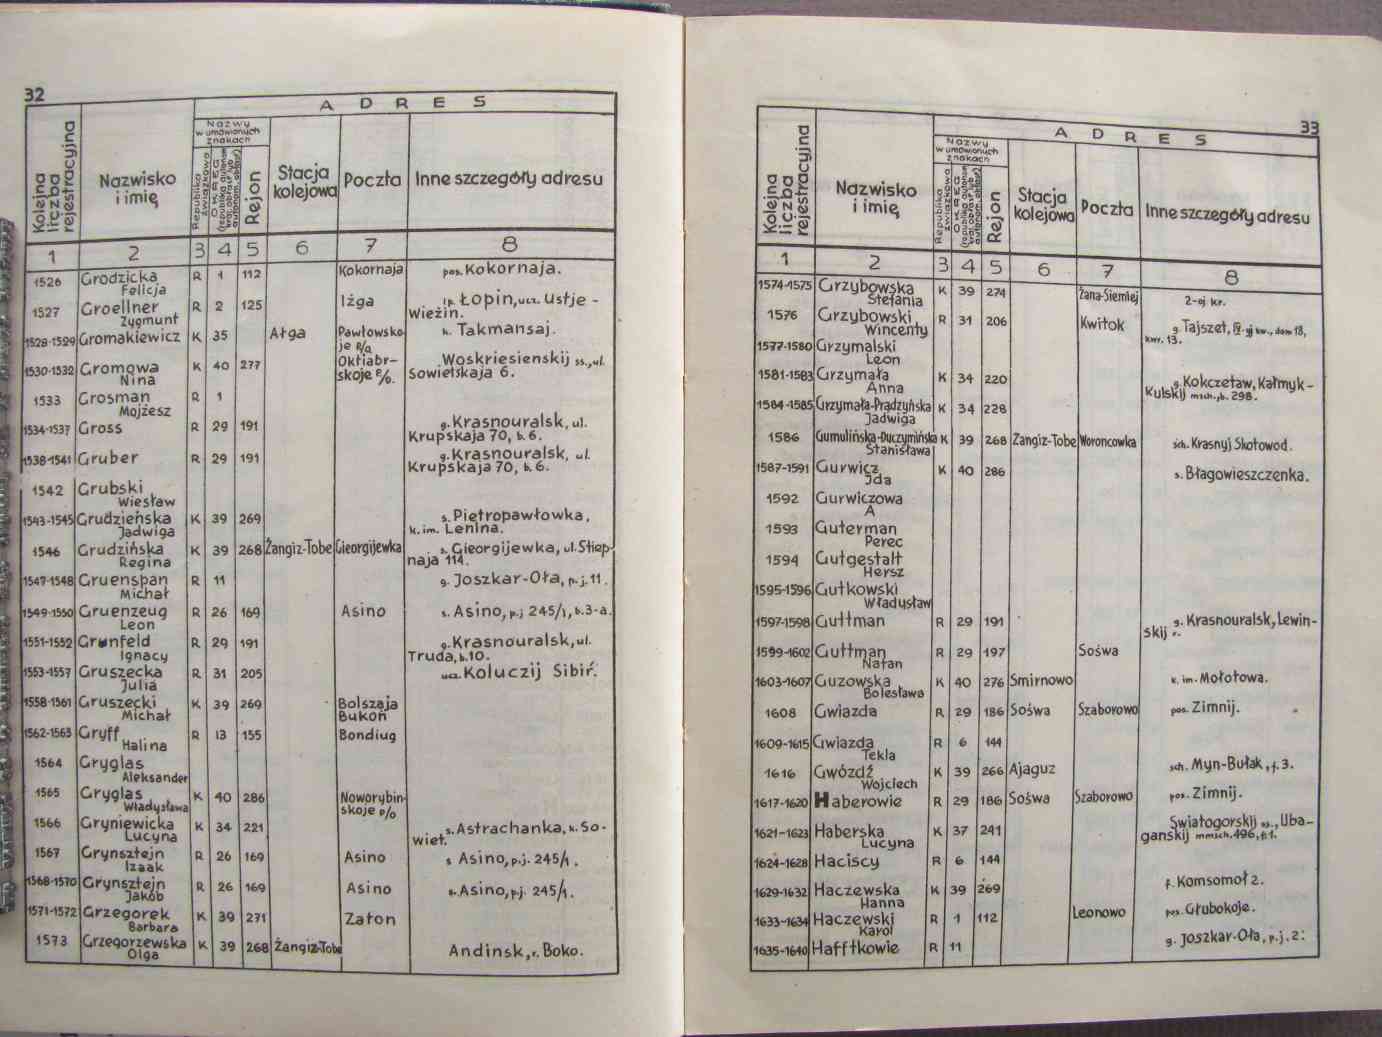 32
A D R E S
Kolejna liczba rejestracyjna
Nazwisko i imię
Nazwy w umówionych znakach
Republika związkowa
OKRĘG
Rejon
Stacja kolejowa
Poczta
Inne szczegóły adresu
1 2 3 4 5 6 7 8
1526 Grodzicka Felicja R 1 112 Kokornaja pos. Kokornaja.
1527 Groellner Zygmunt R 2 125 Iżga ip. Łopin, ucz. Ustje-Wieżin.
1528-1529 Gromakiewicz K 35 Ałga Pawłowskoje p/o k. Takmansaj.
1530-1532 Gromowa Nina K 40 277 Oktiabrskoje p/o. Woskriesienskij ss., ul. Sowietskaja 6.
1533 Grosman Mojżesz R 1
1534-1537 Gross R 29 191 g. Krasnouralsk, ul. Krupskaja 70, b. 6.
1538-1541 Gruber R 29 191 g. Krasnouralsk, ul. Krupskaja 70, b. 6.
1542 Grubski Wiesław
1543-1545 Grudzieńska Jadwiga K 39 269 s. Pietropawłowka, k. im. Lenina.
1546 Grudzińska Regina K 39 268 Żangiz-Tobe Gieorgijewka s. Gieorgijewka, ul. Stiepnaja 114.
1547-1548 Gruenspan Michał R 11 g. Joszkar-Oła, p.j. 11.
1549-1550 Gruenzeug Leon R 26 169 Asino s. Asino, p.j 245/1, b. 3-a.
1551-1552 Grünfeld Ignacy R 29 191 g. Krasnouralsk, ul. Truda, b. 10.
1553-1557 Gruszecka Julia R 31 205 ucz. Koluczij Sibiř.
1558-1561 Gruszecki Michał K 39 269 Bolszaja Bukoń
1562-1563 Gryff Halina R 13 155 Bondiug
1564 Gryglas Aleksander
1565 Gryglas Władysława K 40 286 Noworybinskoje p/o
1566 Gryniewicka Lucyna K 34 221 s. Astrachanka, k. Sowiet.
1567 Grynsztejn Izaak R 26 169 Asino s Asino, p.j. 245/1.
1568-1570 Grynsztejn Jakób R 26 169 Asino s. Asino, p.j. 245/1.
1571-1572 Grzegorek Barbara K 39 271 Zaton
1573 Grzegorzewska Olga K 39 268 Żangiz-Tobe Andinsk, r. Boko.
33
A D R E S
Kolejna liczba rejestracyjna
Nazwisko i imię
Nazwy w umówionych znakach
Republika związkowa
OKRĘG
Rejon
Stacja kolejowa
Poczta
Inne szczegóły adresu
1 2 3 4 5 6 7 8
1574-1575 Grzybowska Stefania K 39 274 Żana-Siemiej 2-oj kr.
1576 Grzybowski Wincenty R 31 206 Kwitok g. Tajszet, IV-yj kw., dom 18, kwr. 13.
1577-1580 Grzymalski Leon
1581-1583 Grzymała Anna K 34 220 g. Kokczetaw, Kałmykkulskij msch., b. 298.
1584-1585 Grzymała-Prądzyńska Jadwiga K 34 228
1586 Gumulińska-Duczymińska Stanisława K 39 268 Zangiz-Tobe Woroncowka sch. Krasnyj Skotowod.
1587-1591 Gurwicz Jda K 40 286 s. Błagowieszczenka.
1592 Gurwiczowa A
1593 Guterman Perec
1594 Gutgestalt Hersz
1595-1596 Gutkowski Władysław
1597-1598 Guttman R 29 191 g. Krasnouralsk, Lewinskij
1599-1602 Guttman Natan R 29 197 Sośwa
1603-1607 Guzowska Bolesława K 40 276 Smirnowo k. im. Mołotowa.
1608 Gwiazda R 29 186 Sośwa Szaborowo pos. Zimnij.
1609-1615 Gwiazda Tekla R 6 144
1616 Gwóźdź Wojciech K 39 266 Ajaguz sch. Myn-Bułak, f. 3.
1617-1620 Haberowie R 29 186 Sośwa Szaborowo pos. Zimnij.
1621-1623 Haberska Lucyna K 37 241 Swiatogorskij ss., Ubaganskij mmsch. 496, f. 1.
1624-1628 Haciscy R 6 144
1629-1632 Haczewska Hanna K 39 269 f. Komsomoł 2.
1633-1634 Haczewski Karol R 1 112 Leonowo pos. Głubokoje.
1635-1640 Hafftkowie R 11 g. Joszkar-Oła, p.j. 2.